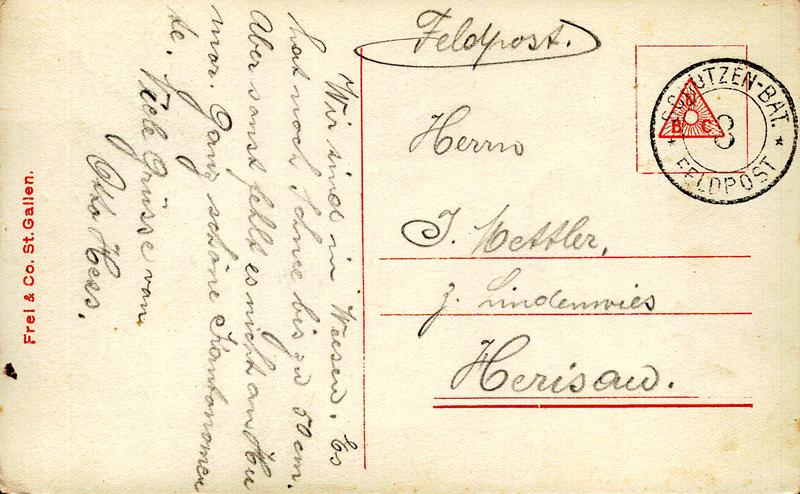 Feldpost.
SCHÜTZEN-BAT.
8
FELDPOST
B C
Herrn
J. Mettler,
z. Lindenwies
Herisau.
Wir sind in Weesen. Es
hat noch Schnee bis zu 50 cm.
Aber sonst fehlt es nicht an Hu
mor. Ganz schöne
te. Viele Grüsse von
Otto Hess.
Frei & Co. St. Gallen.